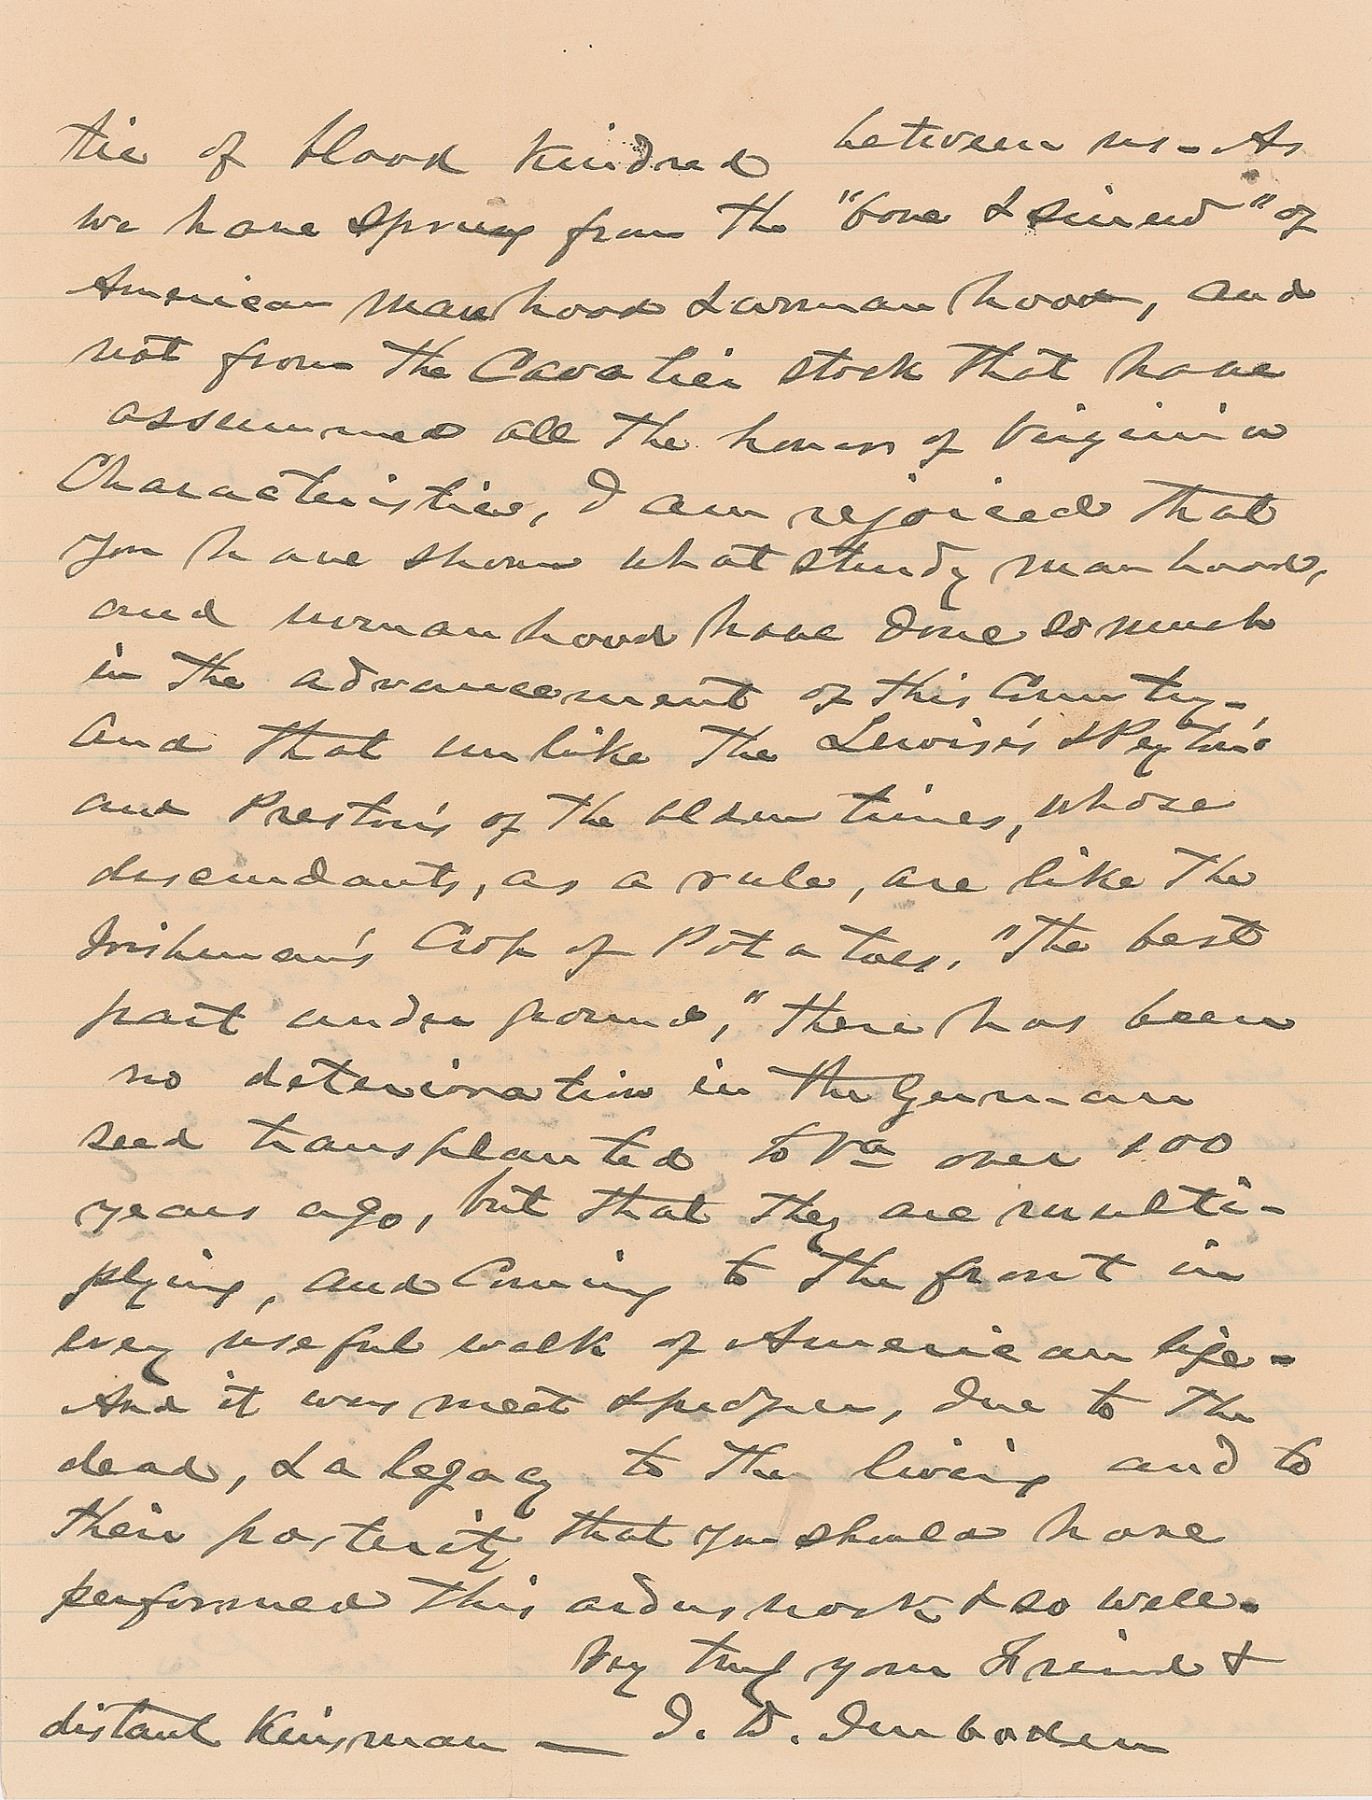 tie of blood kindred between us - As
we have sprung from the "bone & sinew" of
American manhood & womanhood, and
not from the Cavalier stock that have
assummed all the honors of Virginia
Characteristics, I am rejoiced that
you have shown what sturdy manhood,
and womanhood have done so much
in the advancement of this Country -
And that unlike the Lewis's & Peyton's
and Preston's of the olden times, whose
descendants, as a rule, are like the
Irishman's Crop of Potatoes, "the best
part under ground," there has been
no deterioration in the German
seed transplanted to Va over 100
years ago, but that they are multi-
plying, and Coming to the front in
every useful walk of American life -
And it was meet & proper, due to the
dead, & a legacy to the living and to
their posterity that you should have
performed this work & so well -
Very truly your Friend &
distant Kinsman — J. D. Imboden